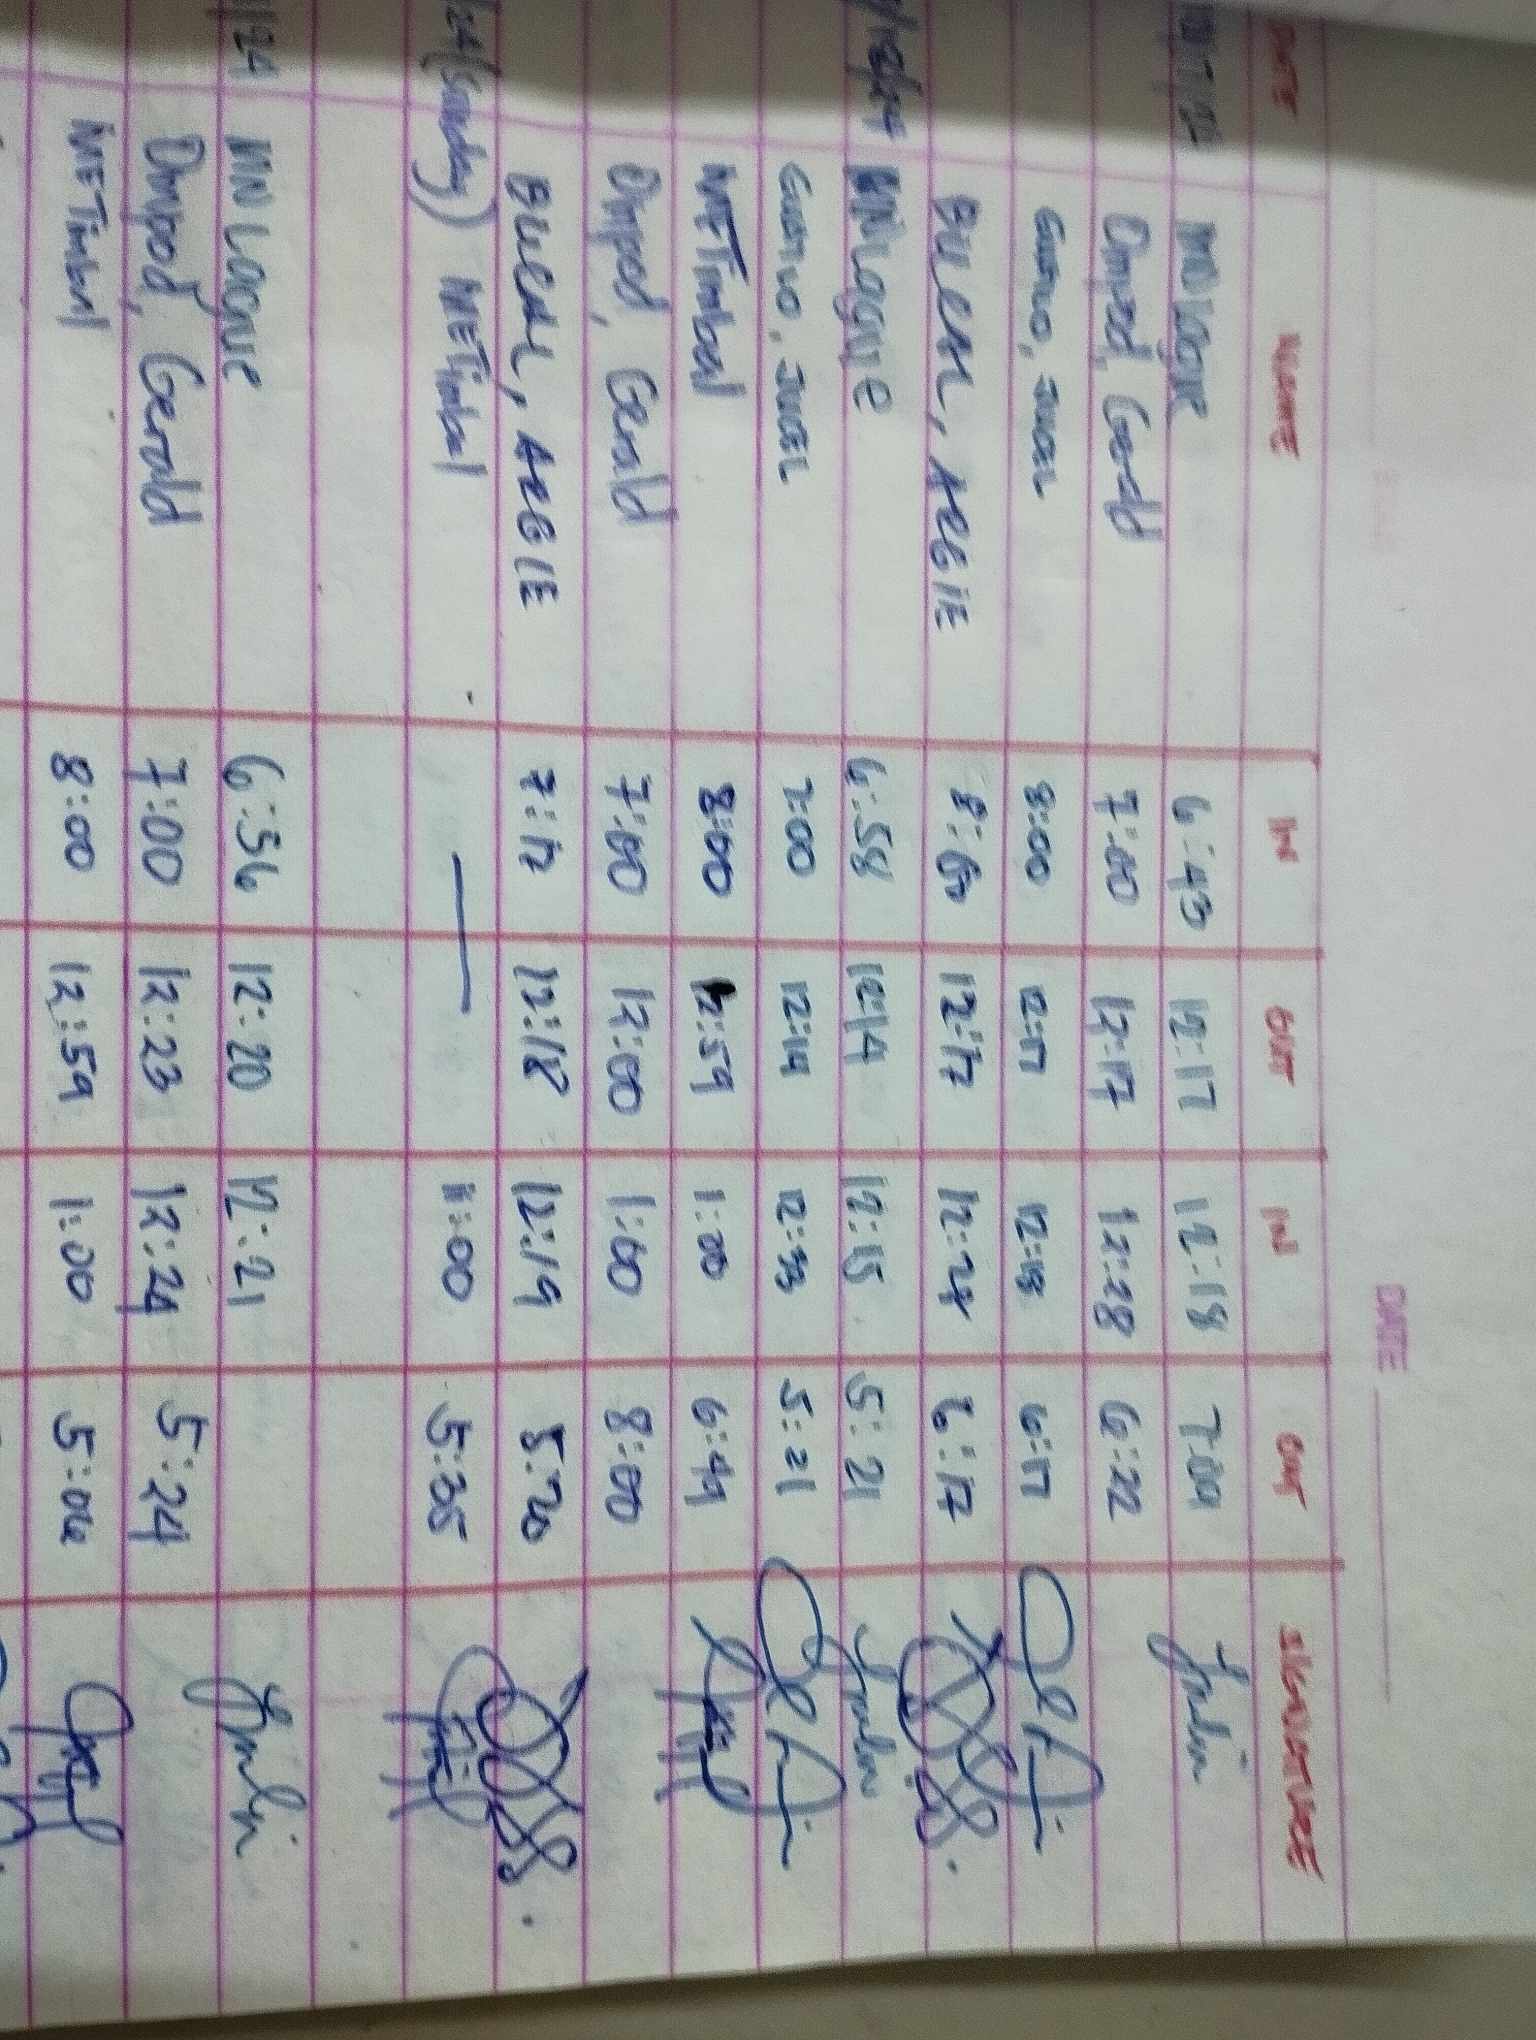 DATE
DATE NAME IN OUT IN OUT SIGNATURE
MN Lague 6:43 12:17 12:18 7:09
Ompod, Gerald 7:00 12:17 12:28 6:22
Gustilo, Juvel 8:00 12:17 12:18 6:17
8:00 12:17 12:28 6:17
MN Lague 6:58 12:14 12:15 5:21
Gustilo, Juvel 7:00 12:14 12:33 5:21
NETimbal 8:00 12:59 1:00 6:49
Ompod, Gerald 7:00 12:00 1:00 8:00
7:17 12:18 12:19 5:20
(Sunday) NETimbal — 1:00 5:35
MN Lague 6:56 12:20 12:21
Ompod, Gerald 7:00 12:23 12:24 5:24
NETimbal 8:00 12:59 1:00 5:06